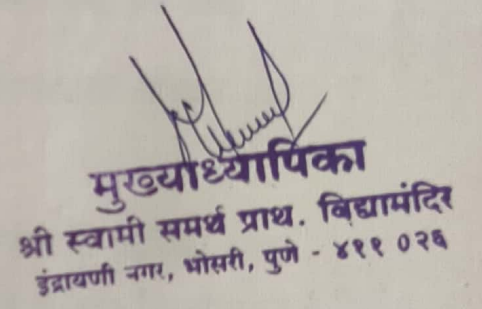 मुख्याध्यापिका
श्री स्वामी समर्थ प्राथ. विद्यामंदिर
इंद्रायणी नगर, भोसरी, पुणे - ४११ ०२६